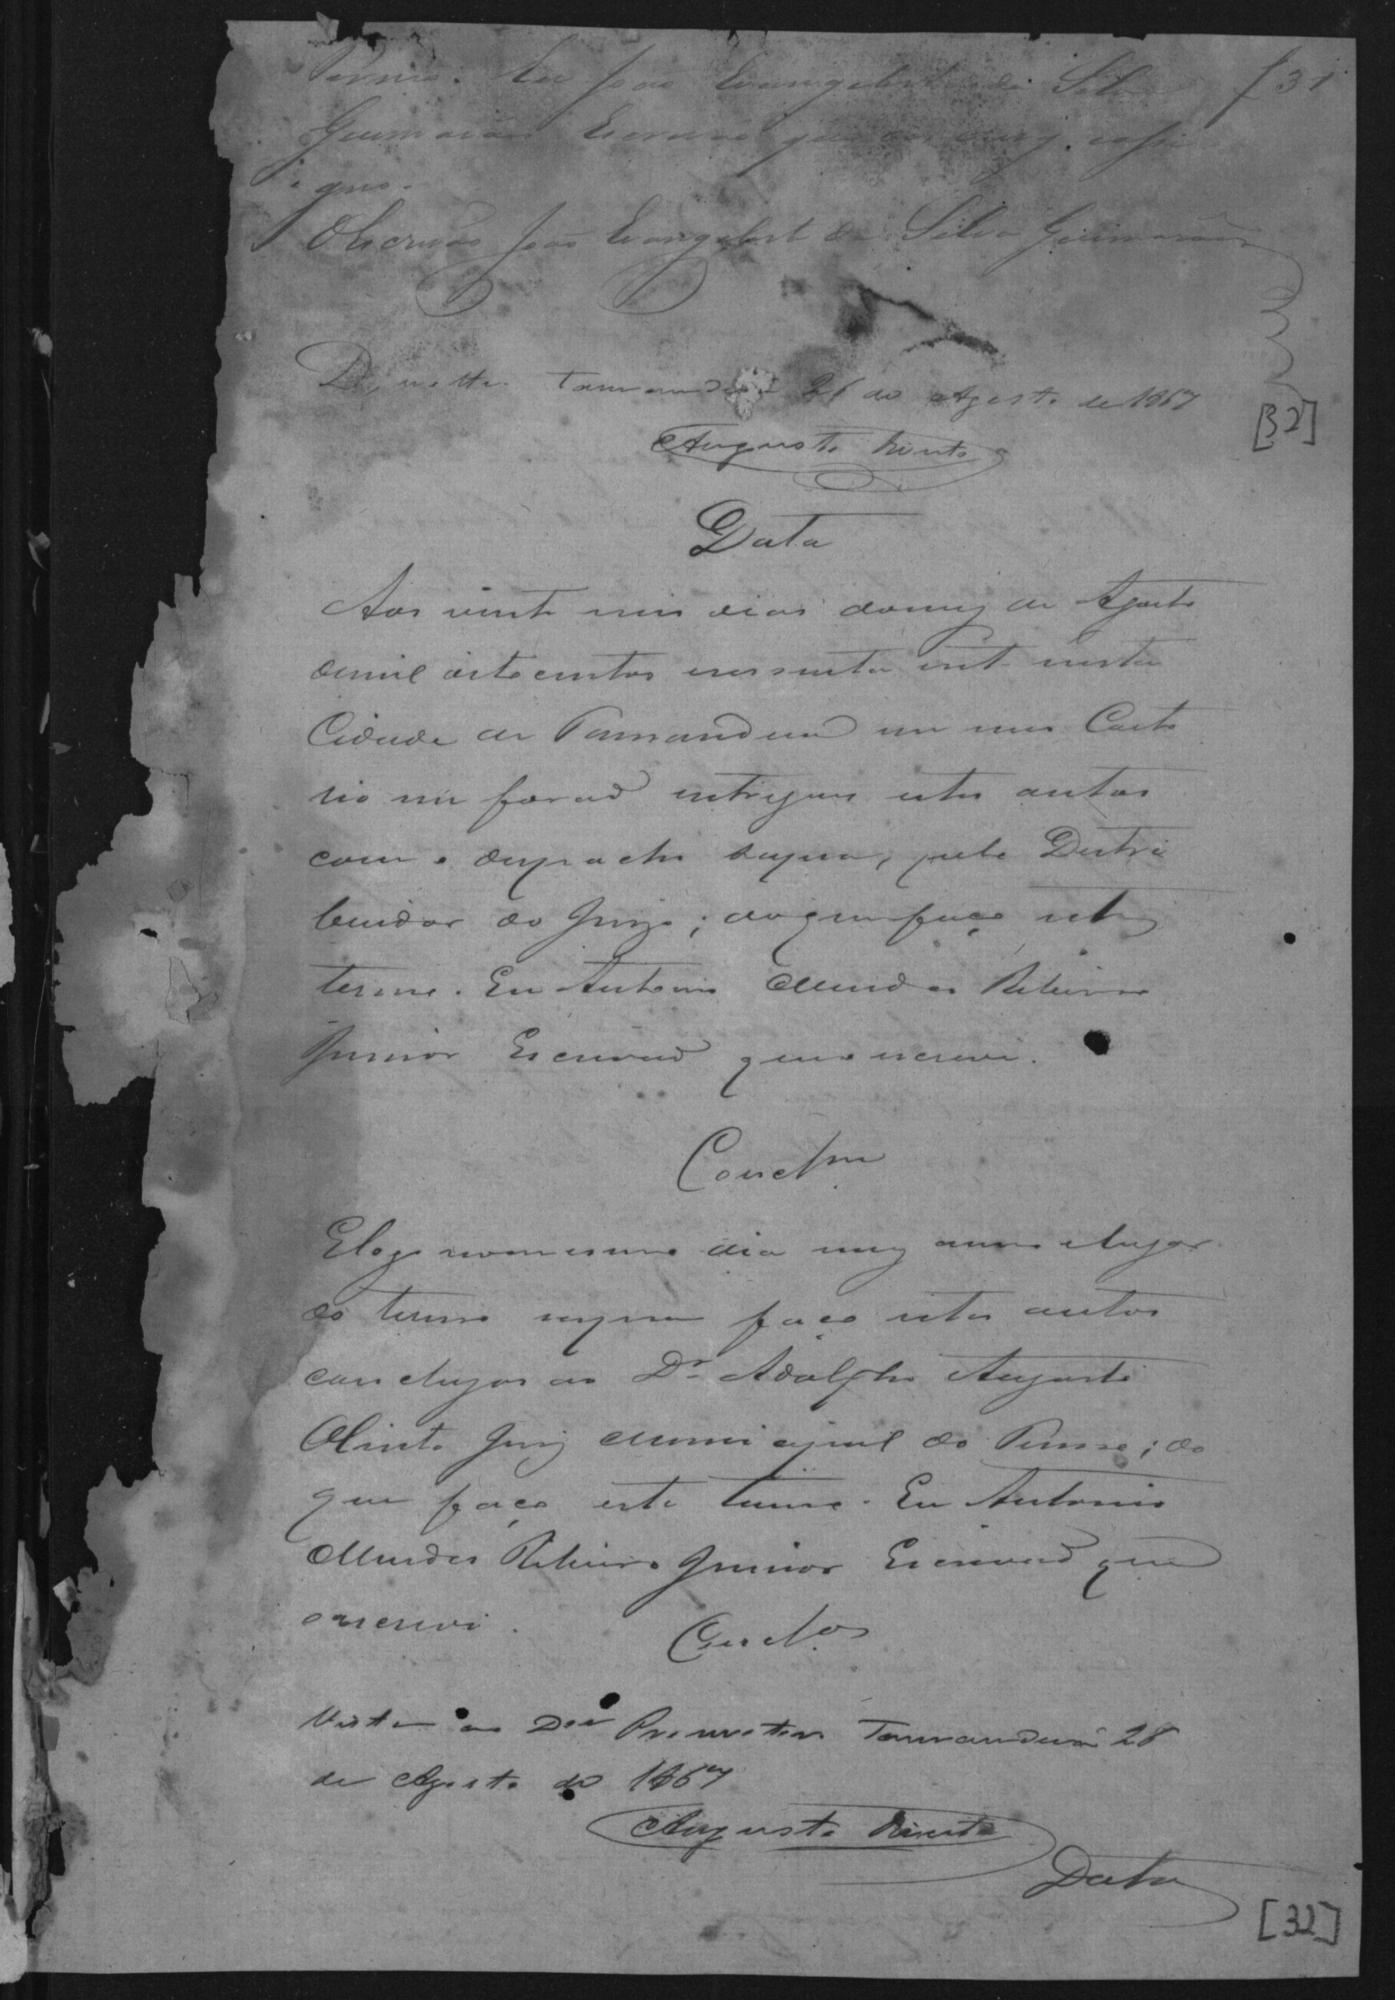 Termo. Eu João Evangelista da Silva f 31
Guimarães Escrivão que
O Escrivão João Evangelista da Silva Guimarães
Tamanduá 26 de Agosto de 1867
[32]
Augusto Olinto
Data
Aos vinte seis dias do mez de Agosto
de mil oito centos sessenta sete nesta
Cidade de Tamanduá em meu Carto
rio me forão entregues estes autos
com o despacho supra, pelo Destri
buidor do Juizo; do que faço este
termo. Eu Antonio Mendes Ribeiro
Junior Escrivão que o escrevi.
Conclm
E logo no mesmo dia mez anno e lugar
do termo supra faço estes autos
conclusos ao Dr. Adolpho Augusto
Olinto Juiz Municipal do Termo; do
que faço este termo. Eu Antonio
Mendes Ribeiro Junior Escrivão que
o escrevi. Conclos
Vista ao Dor Promotor Tamanduá 28
de Agosto de 1867
Augusto Olinto
Data
[32]